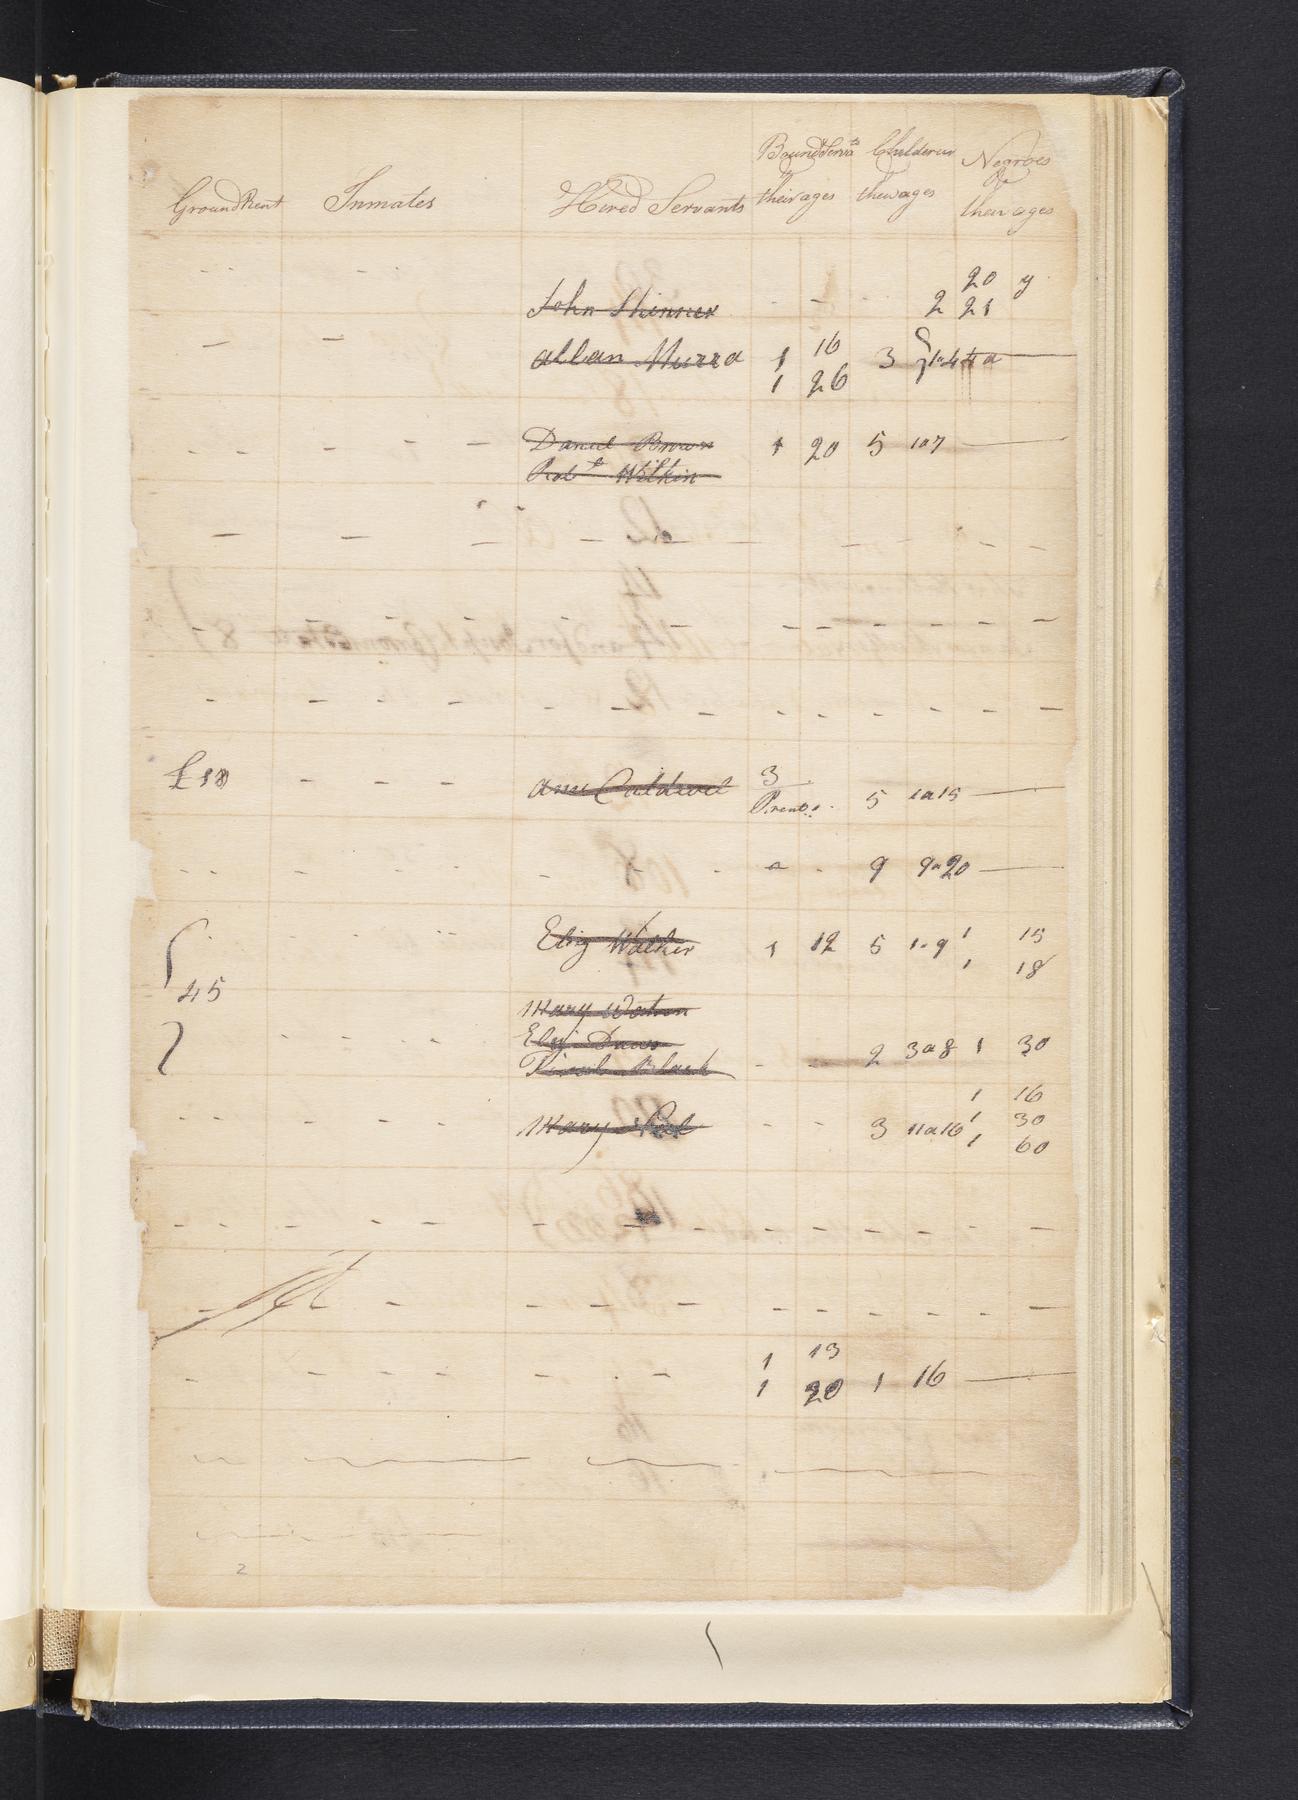 Ground Rent Inmates Hired Servants Bound Servts & their ages Childeren their ages Negroes & their ages
John Skinner - - 2 20 y
21
allan Murra 1 16 3
1 26
Daniel Brown 1 20 5 1a7
Robt Wilkin
£18 ann Caldwel 3 5 1a15
Prents
9 9a20
Eliz Walker 1 12 5 1-9 1 15
1 18
45
Mary Watson
Eliz 2 3a8 1 30
Black
1 16
Mary 3 11a16 1 30
1 60
1 13
1 20 1 16
2